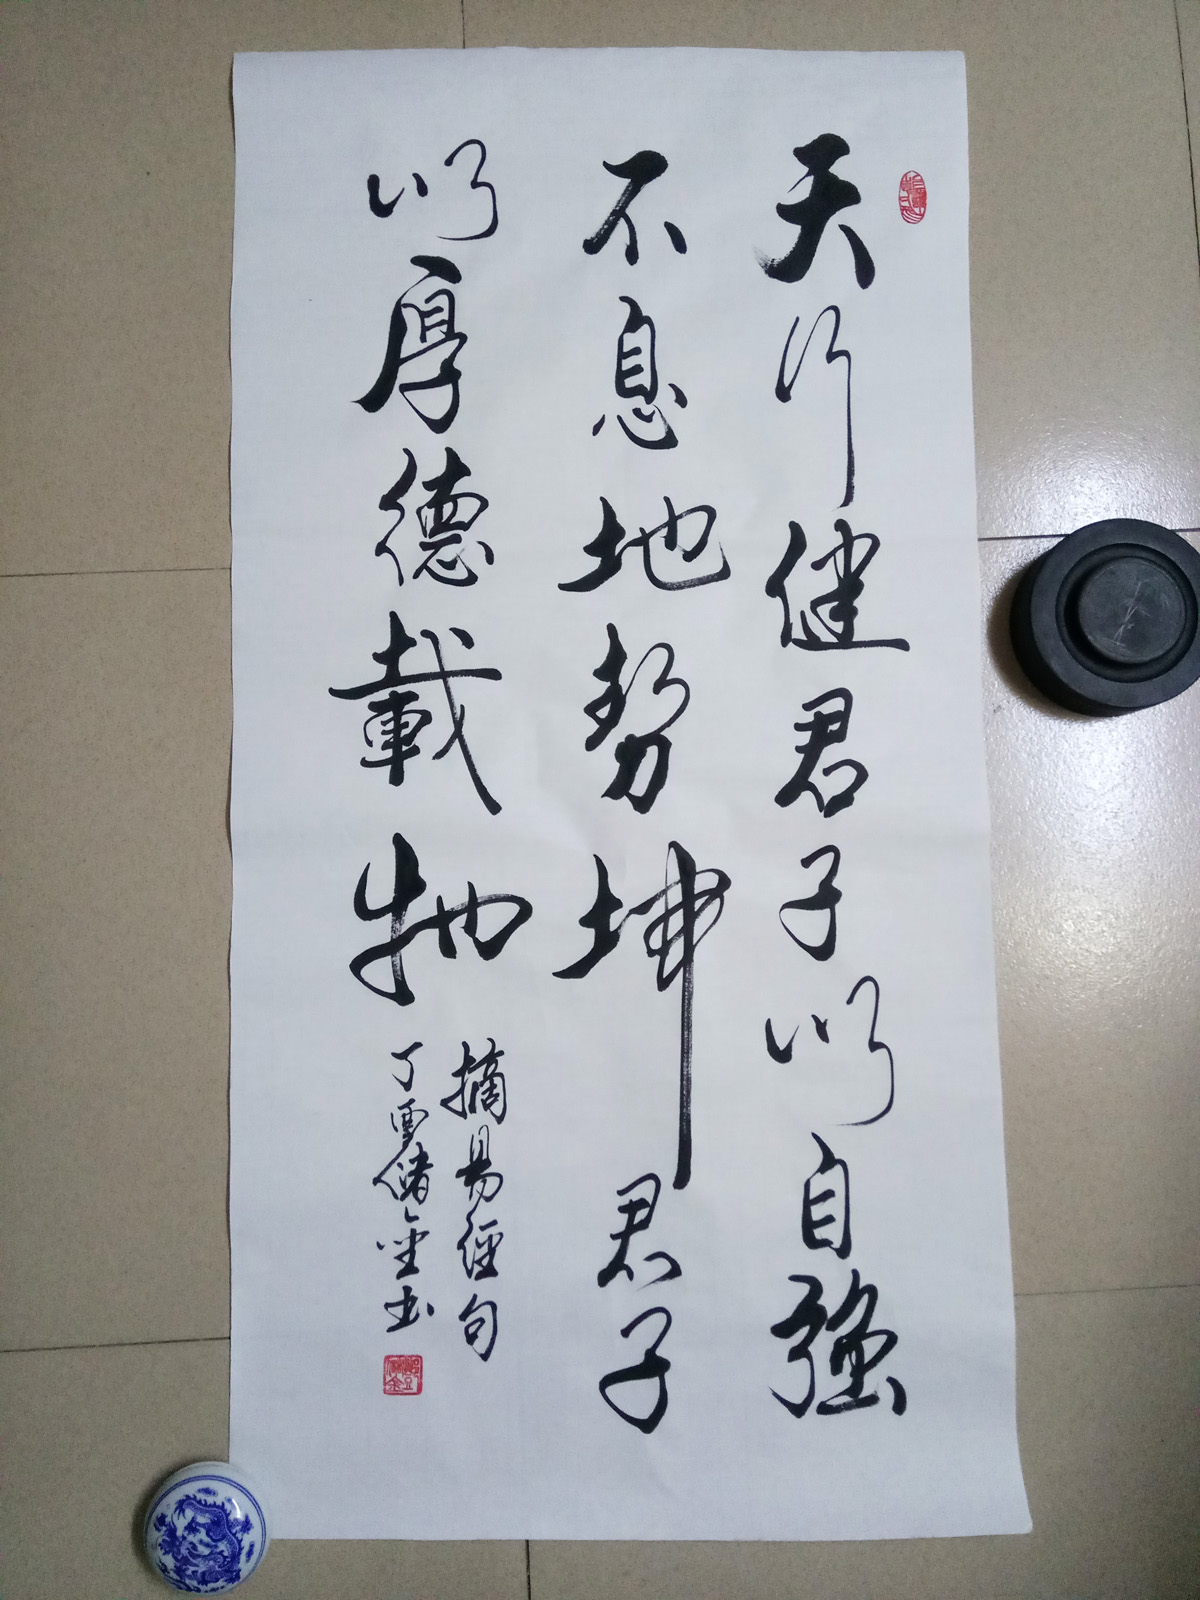 天行健君子以自強
不息地勢坤君子
以厚德載物
摘易經句
丁儲金书